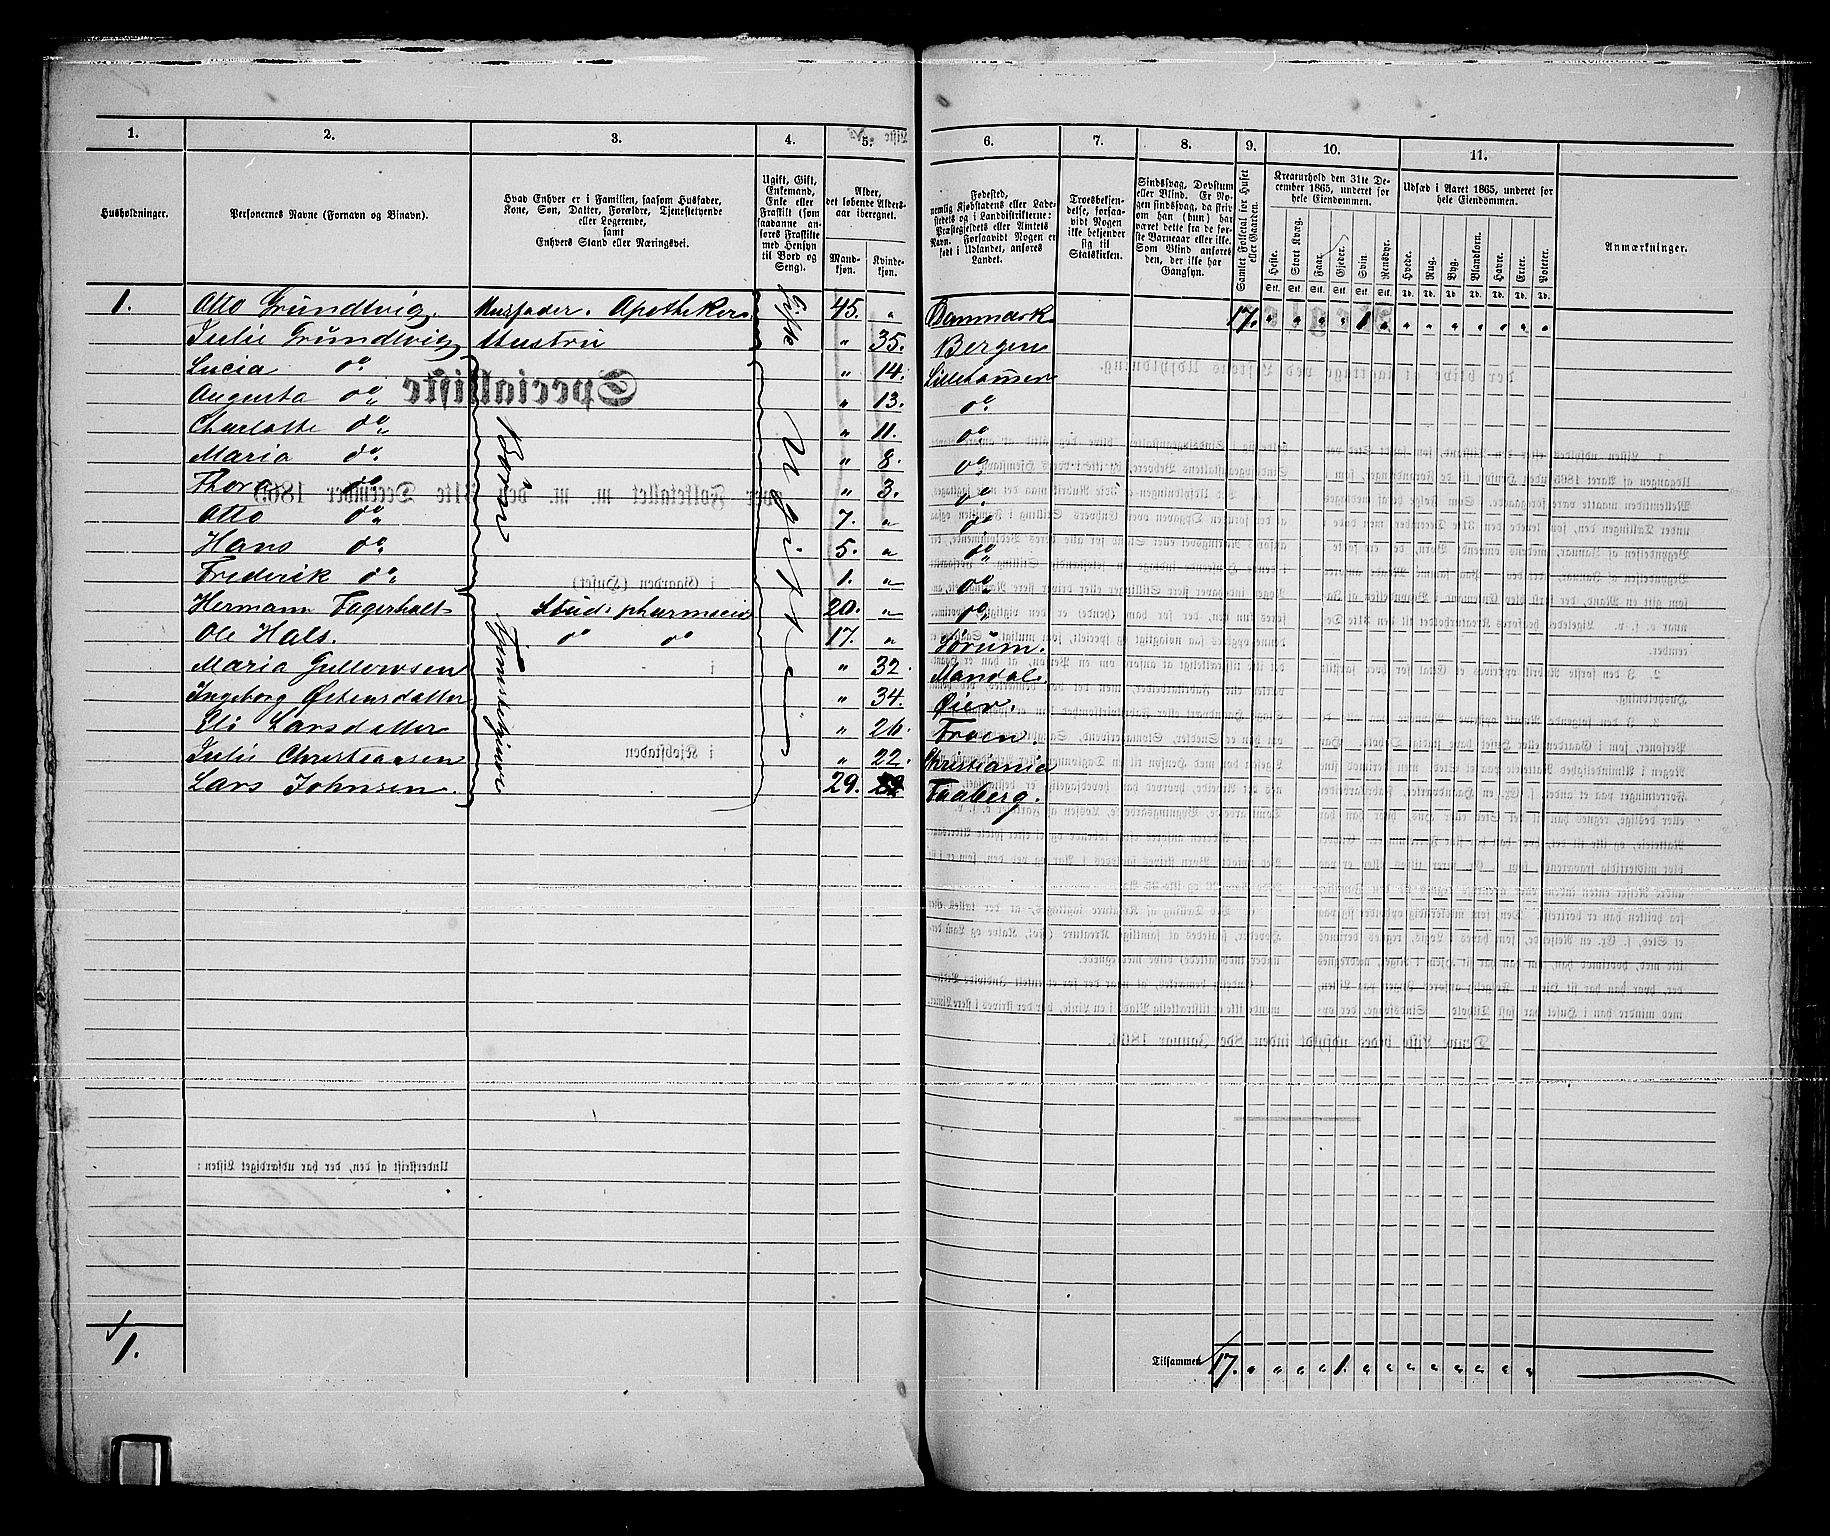 1. 2. 3. 4. 5. 6. 7. 8. 9. 10. 11.
Husholdninger.
Personernes Navne (Fornavn og Binavn).
Hvad Enhver er i Familien, saasom Husfader,
Kone, Søn, Datter, Forældre, Tjenestetyende
eller Logerende,
samt
Enhvers Stand eller Næringsvei.
Ugift, Gift,
Enkemand,
Enke eller
Fraskilt (som
saadanne an-
føres Fraskilte
med Hensyn
til Bord og
Seng).
Alder,
det løbende Alders-
aar iberegnet.
Mand-
kjøn.
Kvinde-
kjøn.
Fødested,
nemlig Kjøbstadens eller Lade-
stedets og i Landdistrikterne:
Præstegjeldets eller Amtets
Navn. Forsaavidt Nogen er
født i Udlandet, anføres
Landet.
Troesbekjen-
delse, forsaa-
vidt Nogen
ikke bekjender
sig til
Statskirken.
Sindssvag, Døvstum
eller Blind. Er No-
gen sindssvag, da skriv
om han (hun) har
været dette fra de før-
ste Barneaar eller ikke.
Som Blind anføres
den, der ikke har
Gangsyn.
Samlet Folketal for Huset
eller Gaarden.
Kreaturhold den 31te De-
cember 1865, underet for
hele Eiendommen.
Heste. Stort Kvæg. Faar. Gjeder. Svin. Rensdyr.
Stk. Stk. Stk. Stk. Stk. Stk.
Udsæd i Aaret 1865, underet for
hele Eiendommen.
Hvede. Rug. Byg. Blandkorn. Havre. Erter. Poteter.
Td. Td. Td. Td. Td. Td. Td.
Anmærkninger.
1. Otto Grundtvig. Husfader. Apotheker Gifte 45. " Danmark 17. " " " " 1. " " " " " " " "
Julie Grundtvig Hustru " 35. Bergen
Lucia do " 14. Lillehammer
Augusta do " 13. do
Charlotte do " 11. do
Maria do " 8. do
Thora do " 3. do
Otto do 7. " do
Hans do 5. " do
Frederik do 1. " do
Børn
Ugifte
Hermann Fagerholt Stud. pharmacia 20. " do
Ole Hals. do do 17. " Sørum.
Maria Gullowsen " 32. Mandal.
Ingeborg Østensdatter " 34. Øier.
Eli Larsdatter " 26. Froen.
Julie Christiansen " 22. Christiania
Lars Johnsen. 29. Faaberg.
Tjenestetjenere
1.
Tilsammen 17. " " " " 1. " " " " " " " "